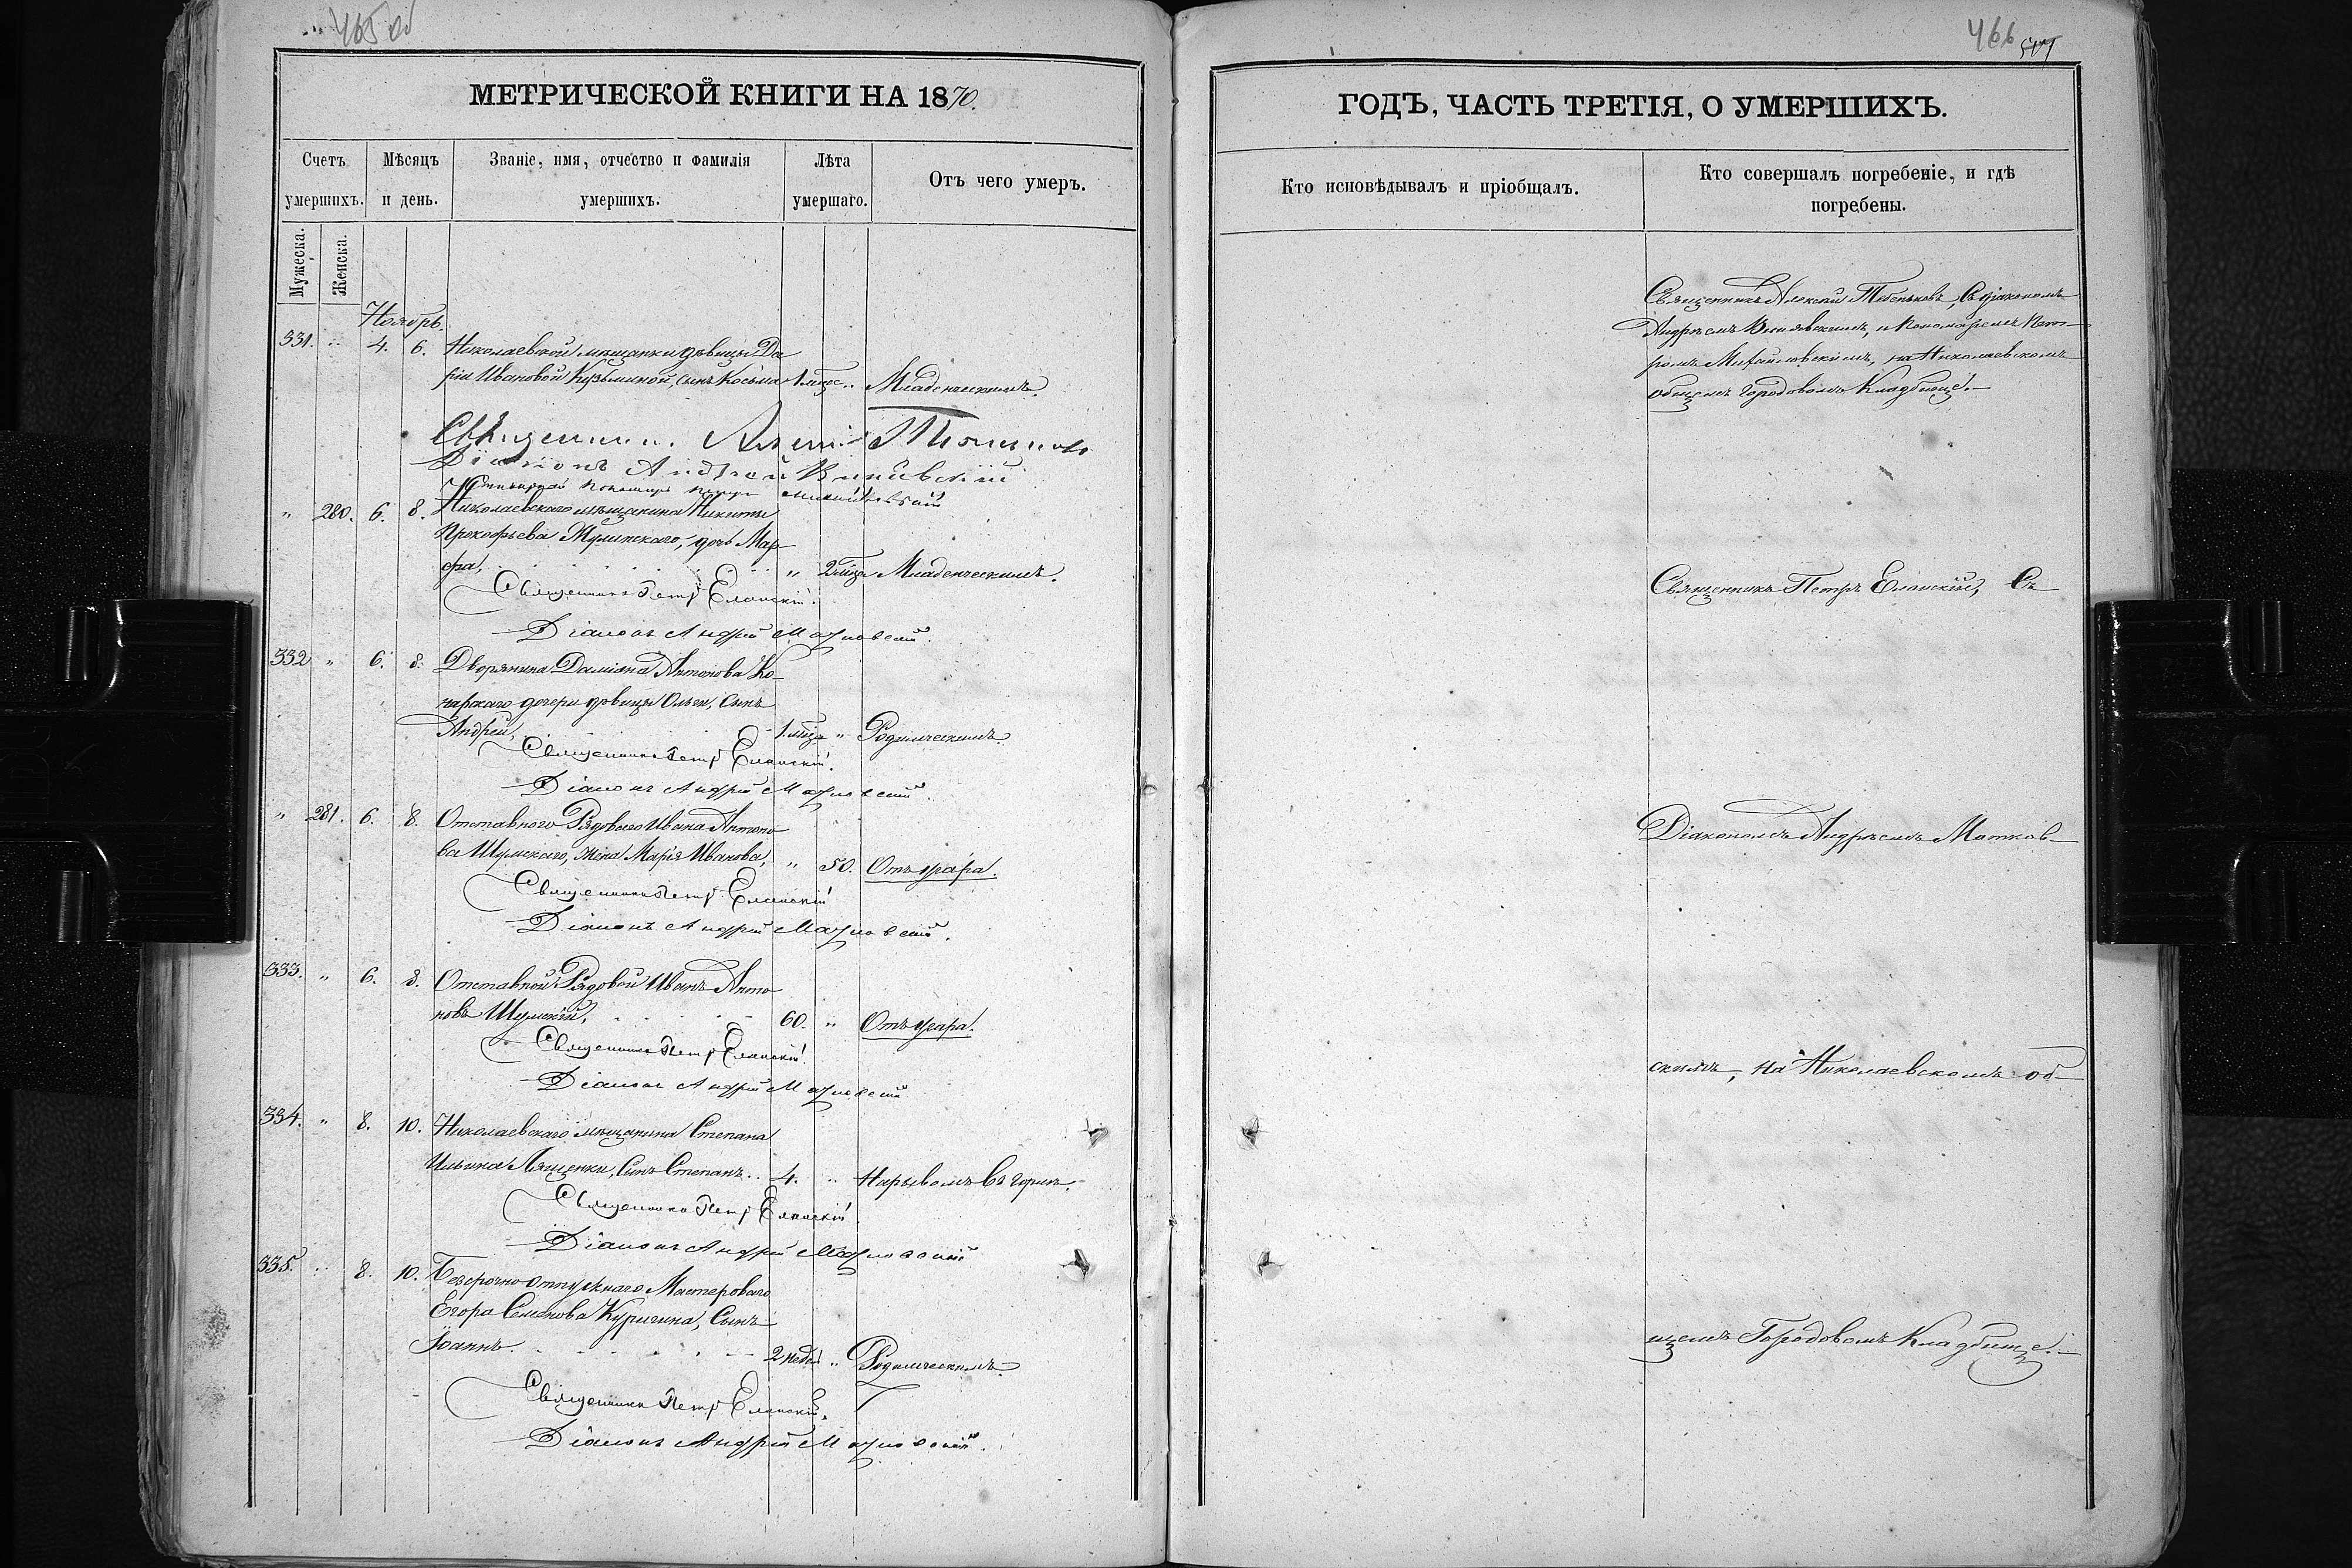 465 об
МЕТРИЧЕСКОЙ КНИГИ НА 1870.
Счетъ умершихъ.
Мѣсяцъ и день.
Званіе, имя, отчество и фамилія умершихъ.
Лѣта умершаго.
Отъ чего умеръ.
Мужеска.
Женска.
Ноябрь.
331. " 4. 6. Николаевской мѣщанки дѣвицы Да
ріи Ивановой Кузьминой, сынъ Косьма 1 мѣс. " Младенческимъ.
Священникъ Алексій
Діаконъ Андрей
" 280. 6. 8. Николаевскаго мѣщанина Никиты
Прокофьева Жулинскаго, дочь Мар-
фа, " 2 мѣца Младенческимъ.
Священникъ Петръ Еланскій.
Діаконъ Андрей Матковскій.
332 " 6. 8. Дворянина Даміана Антонова Ко-
нарскаго дочери дѣвицы Ольги, сынъ
Андрей, 1 мѣца " Родимческимъ.
Священникъ Петръ Еланскій.
Діаконъ Андрей Матковскій.
" 281. 6. 8. Отставного Рядового Ивана Антоно
ва Шумскаго, жена Марія Иванова, " 50. Отъ удара.
Священникъ Петръ Еланскій
Діаконъ Андрей Матковскій.
333. " 6. 8. Отставной Рядовой Иванъ Анто
новъ Шумскій, 60. " Отъ удара.
Священникъ Петръ Еланскій.
Діаконъ Андрей Матковскій
334. " 8. 10. Николаевскаго мѣщанина Степана
Ильина Лященки, сынъ Степанъ 4. " Нарывомъ въ горлѣ.
Священникъ Петръ Еланскій.
Діаконъ Андрей Матковскій
335. " 8. 10. Безсрочно отпускнаго Мастероваго
Егора Семенова Куригина, Сынъ
Іоаннъ. 2 недѣл " Родимческимъ.
Священникъ Петръ Еланскій.
Діаконъ Андрей Матковскій.
466
ГОДЪ, ЧАСТЬ ТРЕТІЯ, О УМЕРШИХЪ.
Кто исповѣдывалъ и пріобщалъ.
Кто совершалъ погребеніе, и гдѣ
погребены.
Священникъ Алексій съ діакономъ
Андреемъ и Пономаремъ Пет-
ромъ Михайловскимъ, на Николаевскомъ
общемъ городовомъ Кладбище.
Священникъ Петръ Еланскій, Съ
Діакономъ Андреемъ Матков-
скимъ, на Николаевскомъ об-
щемъ Городовомъ Кладбище.